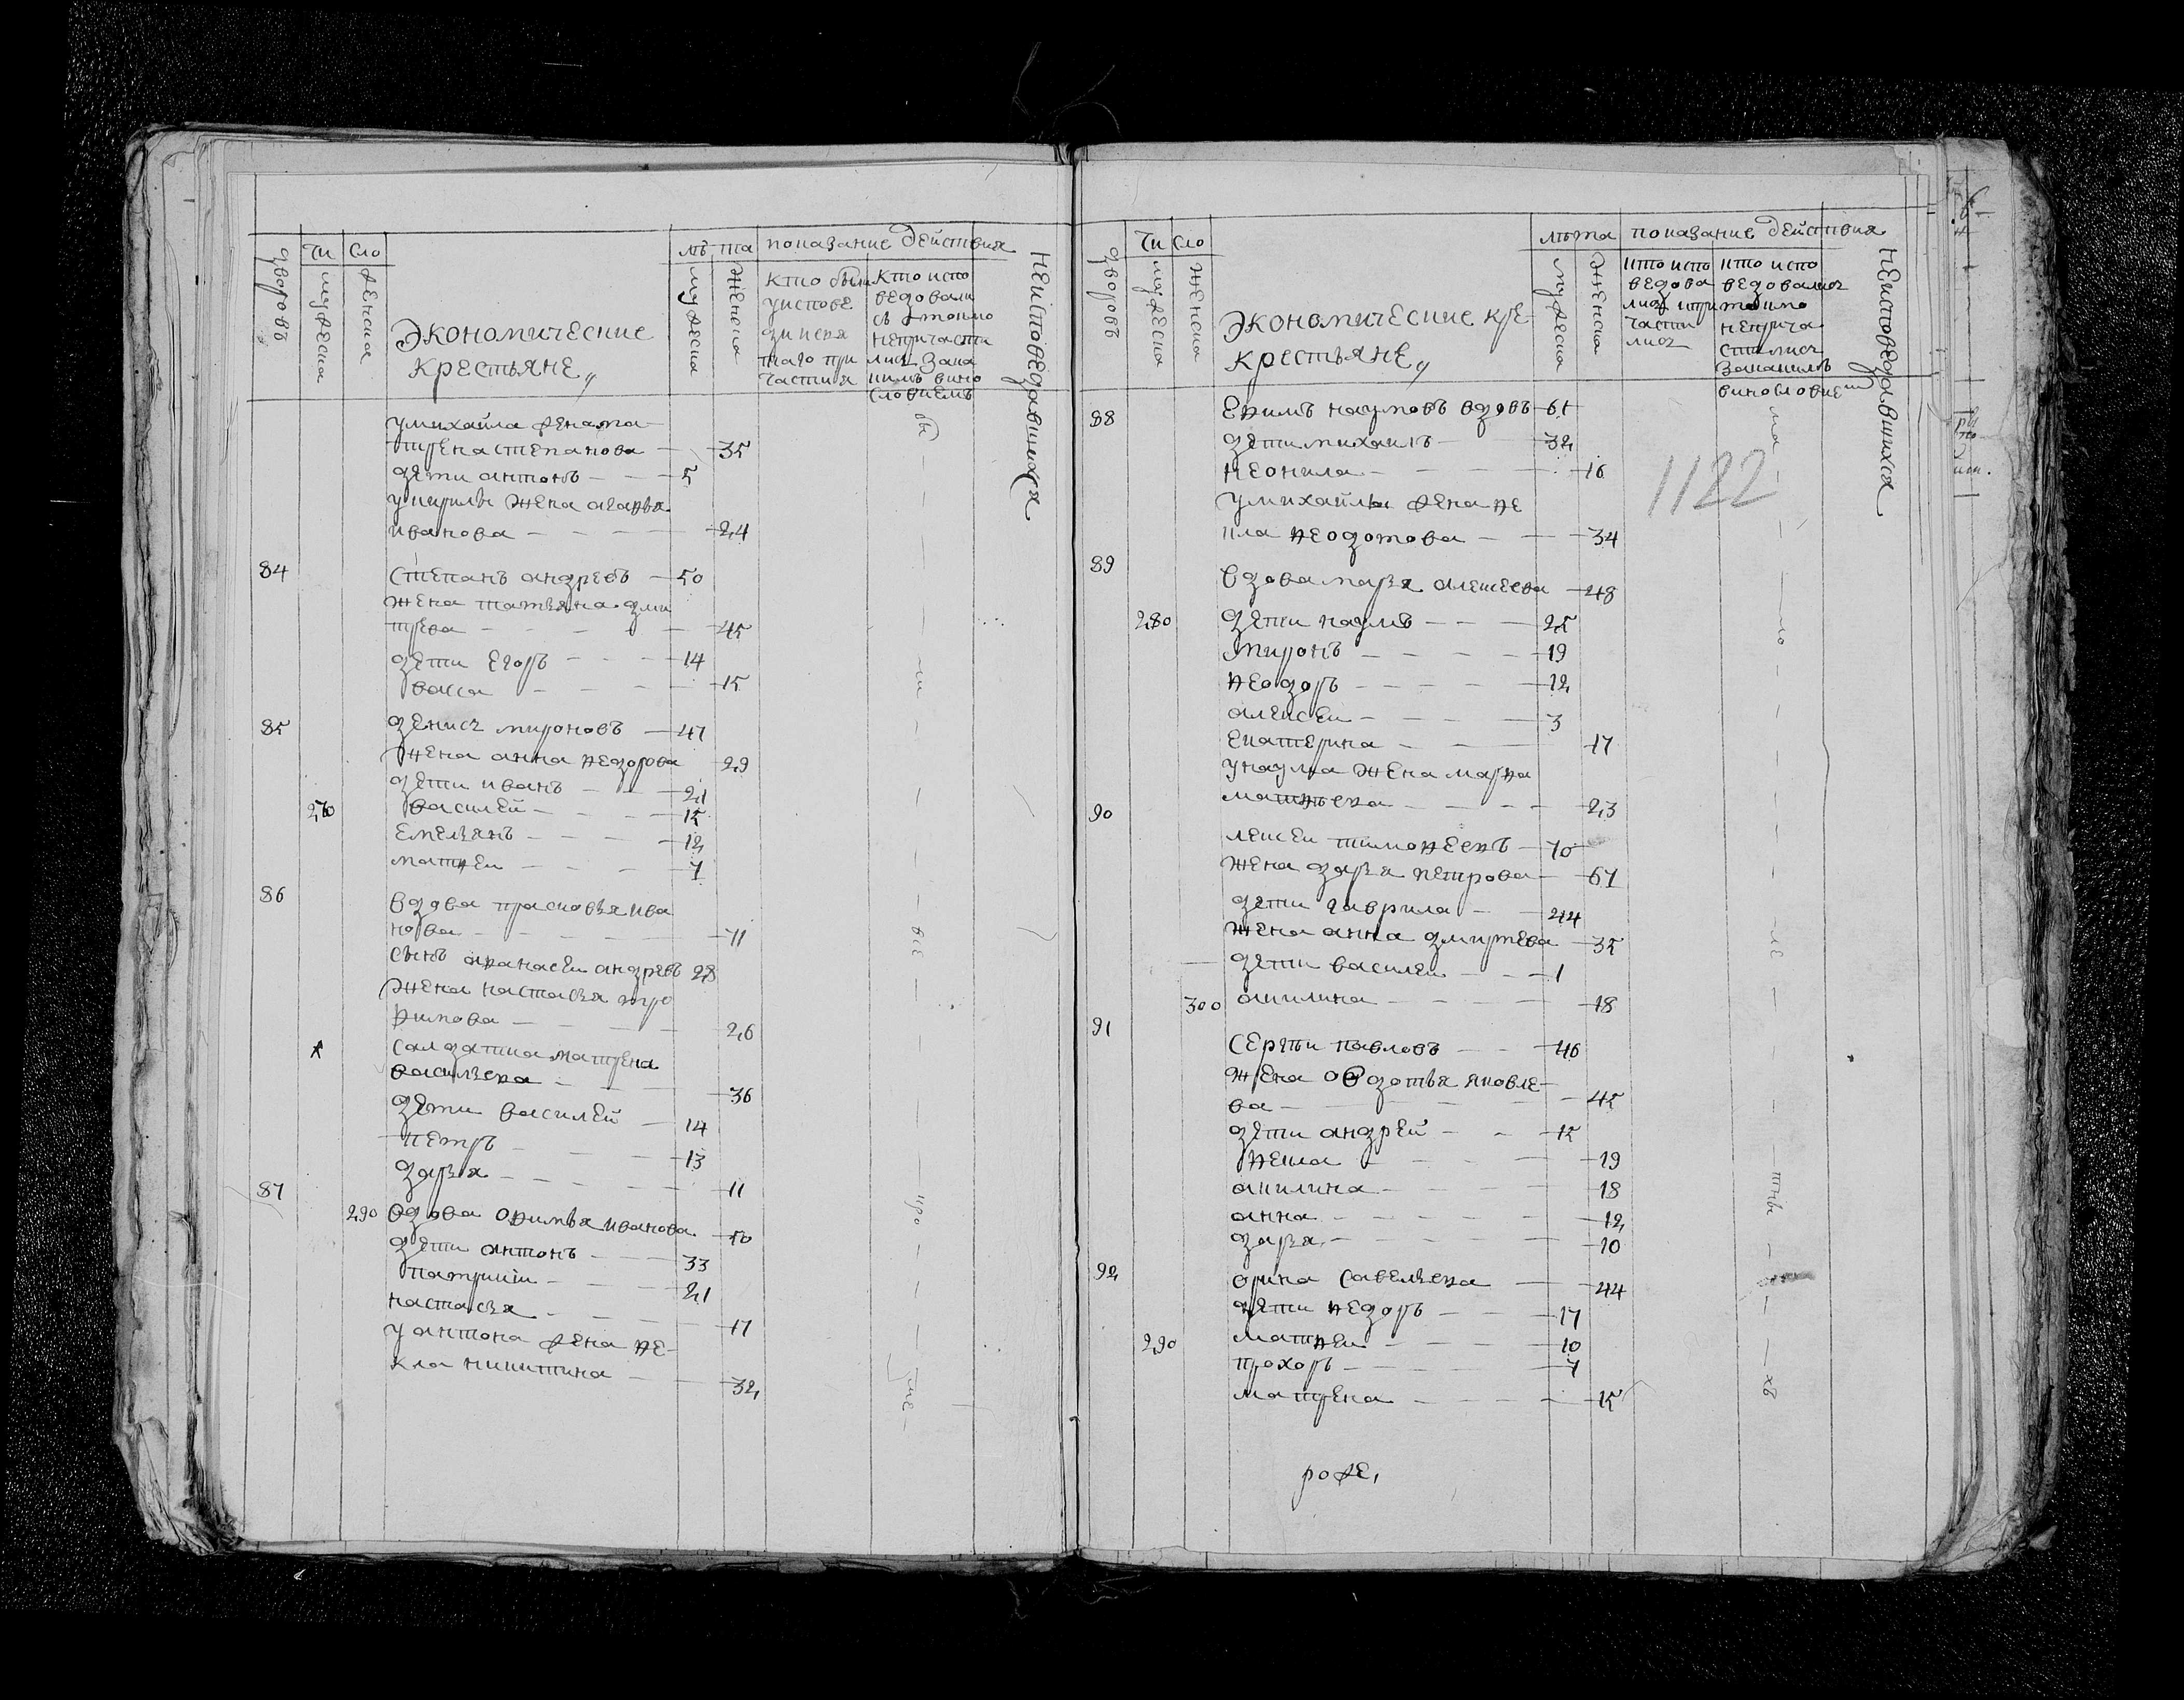 дворовъ
Чи сло
мужеска
женска
Экономические
крестьяне
лѣ та
мужеска
женска
показание действия
кто были
у испове
ди и свя
таго при
частия
кто испо
ведовали
сь токмо
непричасти
лись зака
кимъ вино
словиемъ
неисповедавшихся
у михаила жена ма
трена степанова 35
дети антонъ 5
у кирилы жена агафья
иванова 24
84 степанъ андреевъ 50
жена татьяна дми
треева 45
дети егоръ 14
васса 15
85 денисъ мироновъ 47
жена анна федорова 29
дети иванъ 21
270 василей 15
емельянъ 12
матфеи 7
86 вдова прасковья ива
нова 71
сынъ афанасеи андреевъ 28
жена настасья тро
фимова 26
салдатка матрена
васильева 36
дети василей 14
петръ 13
дарья 11
87
290 вдова офимья иванова 50
дети антонъ 33
патрикіи 21
настасья 17
у антона жена фе
кла никитина 32
бы
ли
все
про
тче
дворовъ
Чи сло
мужеска
женска
Экономические кре
крестьяне
лѣта
мужеска
женска
показание действия
кто испо
ведова
лись и при
части
лись
кто испо
ведовались
токмо
неприча
стились
закакимъ
винословием
неисповедавшихся
1122
88 ефимъ наумовъ вдовъ 61
дети михаилъ 32
неонила 16
у михайлы жена фе
кла феодотова 34
89
вдова марья алексеева 48
280 дети наумъ 25
миронъ 19
феодоръ 12
алексеи 3
екатерина 17
у наума жена марфа
матфеева 23
90
лексеи тимофеевъ 70
жена дарья петрова 67
дети гаврила 44
жена анна дмитрева 35
дети василеи 1
300 акилина 18
91
сергѣи павловъ 46
жена овдотья яковле
ва 45
дети андрей 15
фекла 19
акилина 18
анна 12
дарья 10
92 орина савельева 44
дети федоръ 17
290 матфеи 10
прохоръ 7
матрена 15
ма
ло
ле
тны
хъ
роже,